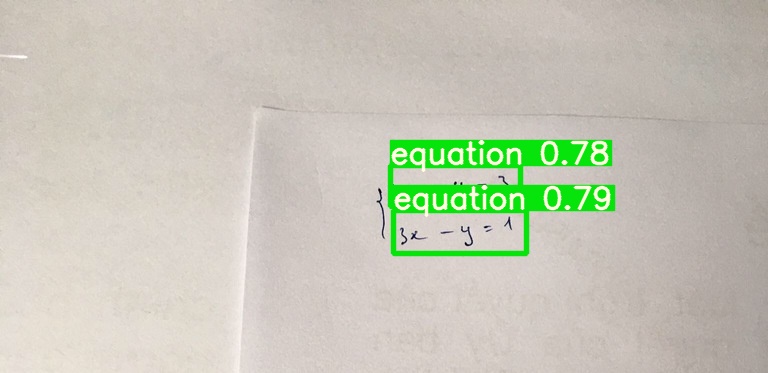 equation 0.78
equation 0.79
3x - y = 1